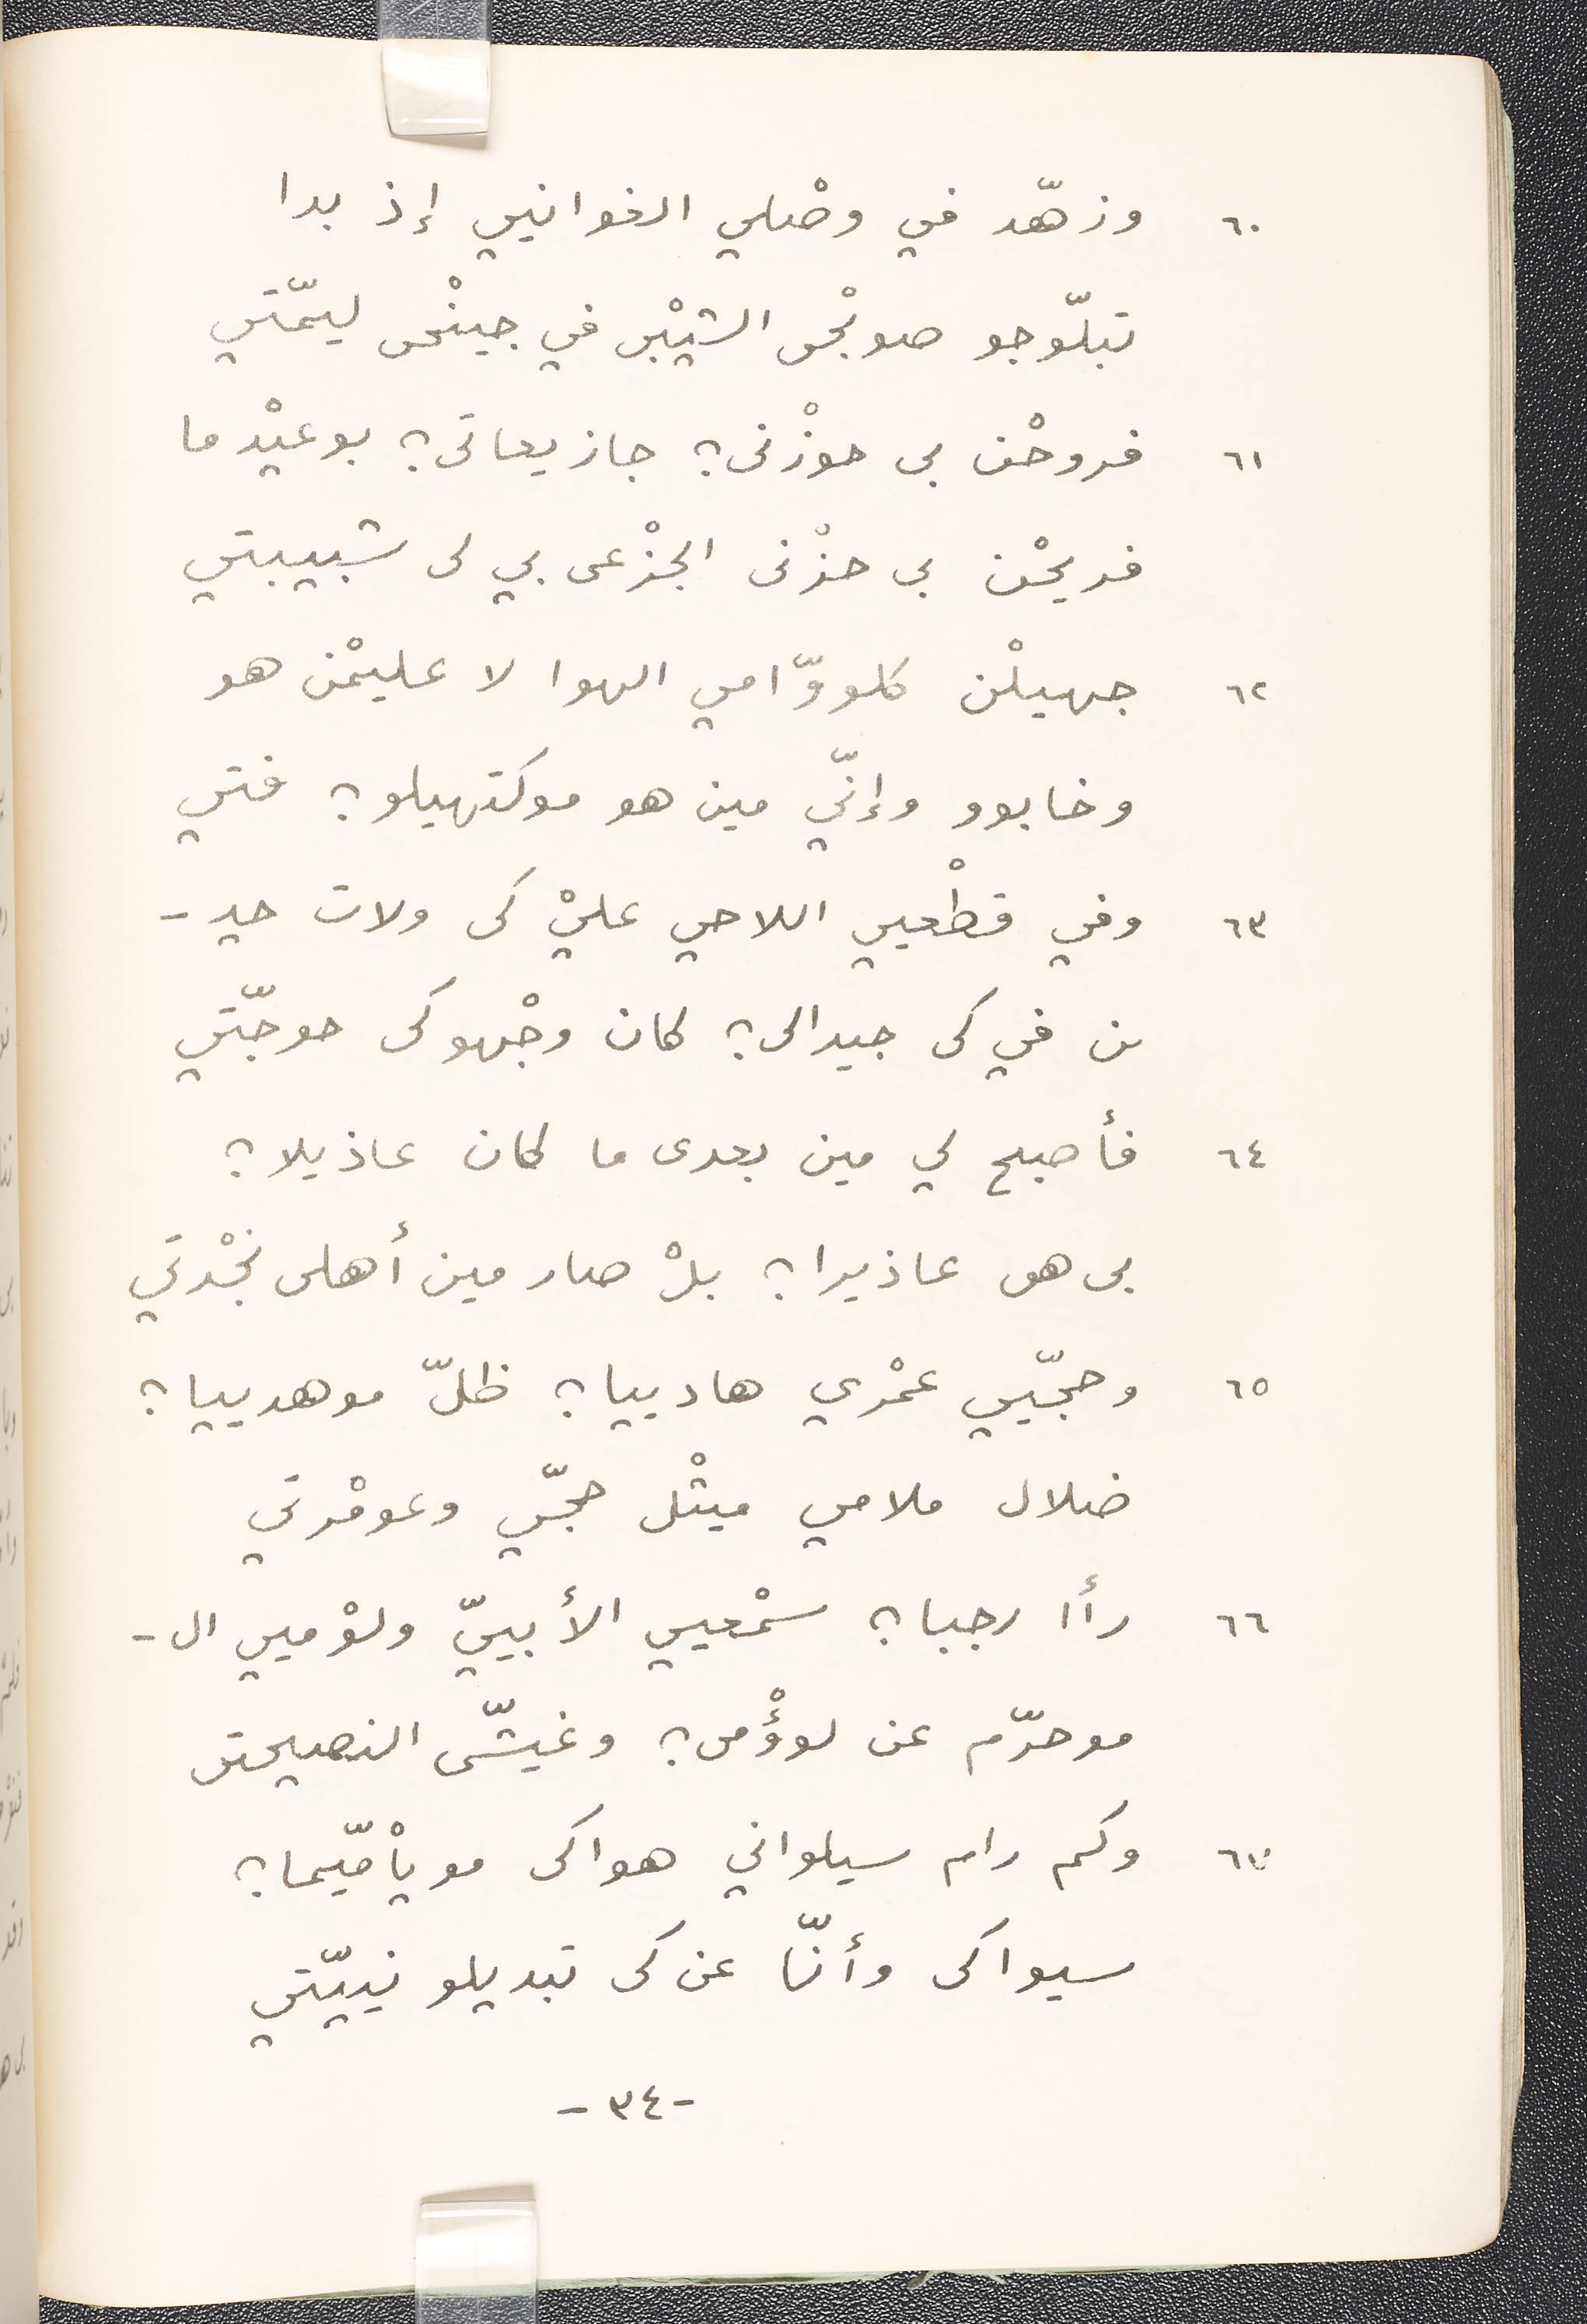 ٦٠ وزهّد في وصْلي الغواني إذ بدا
تبلّوجو صوبْحى الشيْبى في جينْحى ليمّتي
٦١ فروحْن بى حوزْنى؟ جازيعاتى؟ بوعيْدما
فريحْن بى حزْنى الجزْعى بي لى شبيبتي
٦٢ جهيلْن كلووّامي الهوا لا عليمْن هو
وخابوو وإنّي مين هو موكتهيلو؟ فتي
٦٣ وفي قطْعيي اللاحي عليْ كى ولات حيـ -
ن في كى جيدالى؟ كان وجْهوكى حوجّتي
٦٤ فأصبح لي مين بعدى ما كان عاذيلا؟
بى هى عاذيرا؟ بلْ صار مين أهلى نجْدتي
٦٥ وحجّيي عمْري هادييا؟ ظلّ موهدييا؟
ضلال ملامي ميثْل حجّي وعومْرتي
٦٦ رأا رجبا؟ سمْعيي الأبييّ ولوْميي ال -
موحرّم عن لوؤْمى؟ وغيشّى النصيحتى
٦٧ وكم رام سيلواني هواكى مويأْمّيما؟
سيواكى وأنّا عن كى تبديلو نييّتي
- ٣٤ -